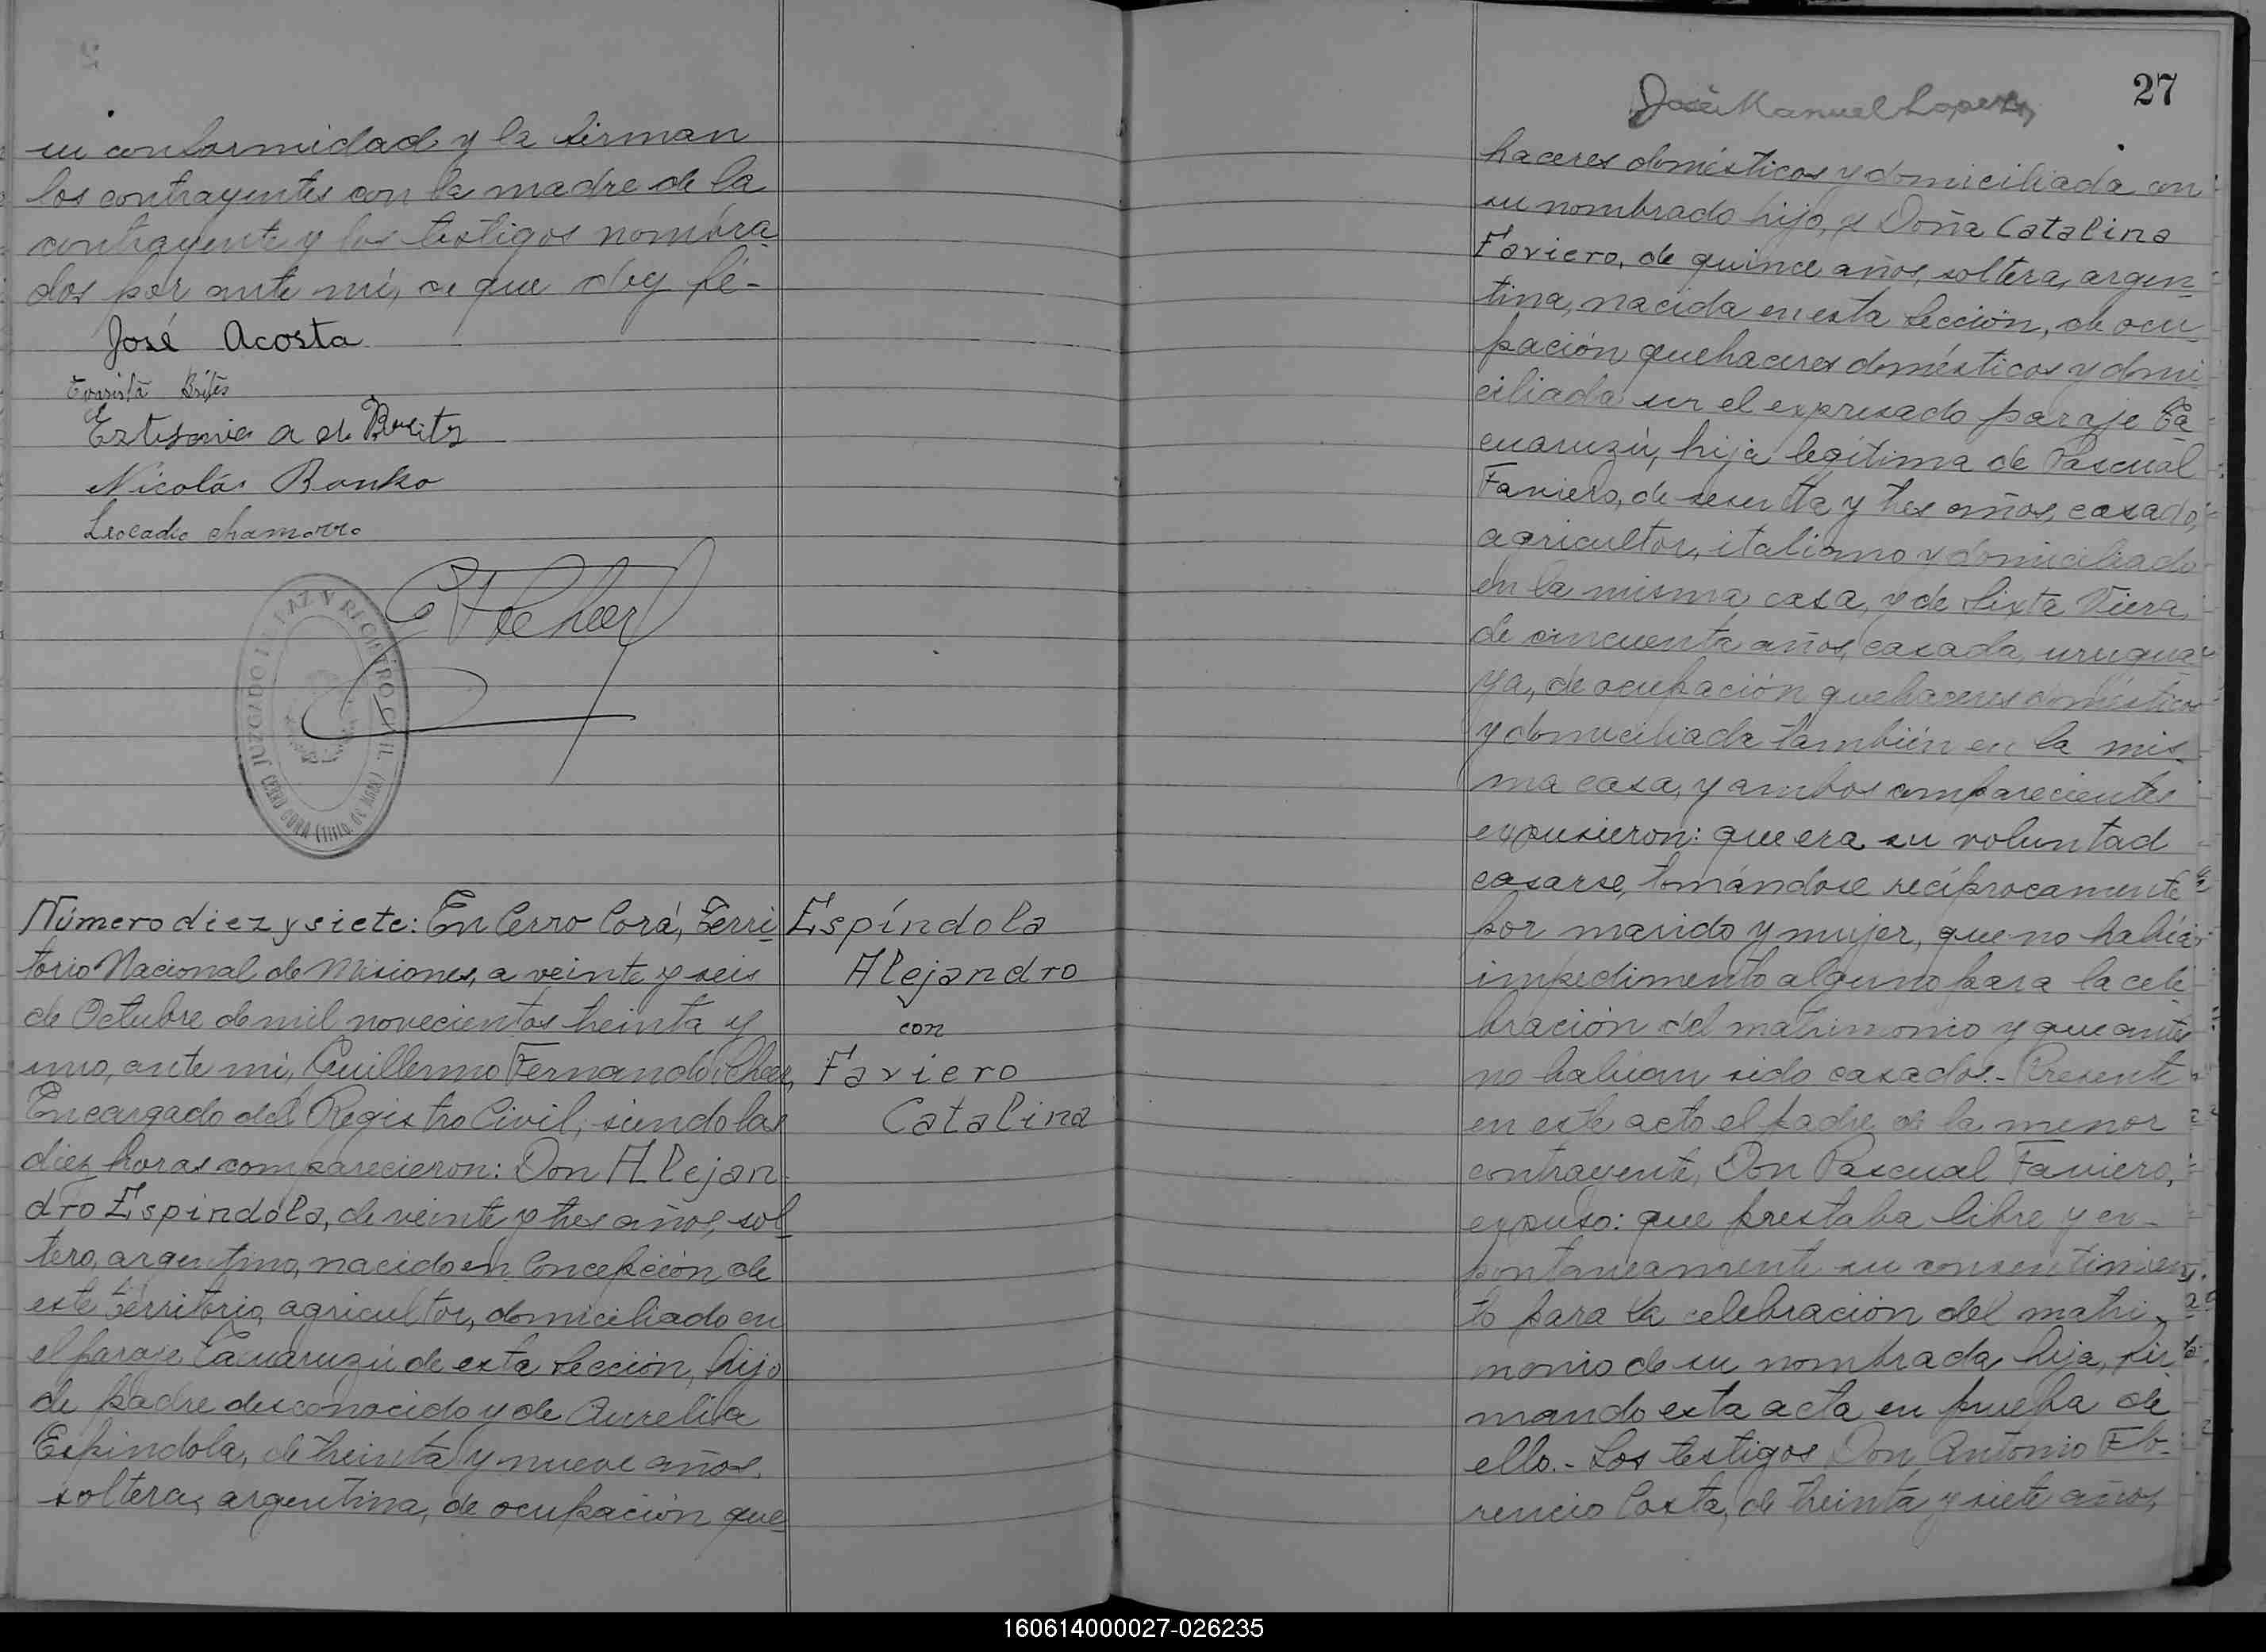 su conformidad y la firman
los contrayentes con la madre de la
contrayente y los testigos nombra-
dos por ante mí, de que doy fé-
José Acosta
Brites
a de Britz
Nicolás Bonko
Leocadio chamorro
JUZGADO DE PAZ Y REGISTRO CIVIL
CERRO CORÁ (MIS.)
Número diez y siete: En Cerro Corá, Terri-
torio Nacional de Misiones, a veinte y seis
de Octubre de mil novecientos treinta y
uno, ante mí, Guillermo Fernando
Encargado del Registro Civil, siendo las
diez horas comparecieron: Don Alejan-
dro Espíndola, de veinte y tres años, sol-
tero, argentino, nacido en Concepción de
este territorio, agricultor, domiciliado en
el paraje Tacuaruzú de esta Sección, hijo
de padre desconocido y de Aurelia
Espíndola, de treinta y nueve años,
soltera, argentina, de ocupación que-
Espíndola
Alejandro
con
Faviero
Catalina
27
José Manuel Lopez
haceres domésticos y domiciliada con
su nombrado hijo, y Doña Catalina
Faviero, de quince años, soltera, argen-
tina, nacida en esta Sección, de ocu-
pación quehaceres domésticos y domi-
ciliada en el expresado paraje Ta-
cuaruzú, hija legítima de Pascual
Faviero, de sesenta y tres años, casado,
agricultor, italiano y domiciliado
en la misma casa, y de Sixta Viera,
de cincuenta años, casada, urugua-
ya, de ocupación quehaceres domésticos
y domiciliada también en la mis-
ma casa, y ambos comparecientes
expusieron: que era su voluntad
casarse, tomándose recíprocamente
por marido y mujer, que no había
impedimento alguno para la cele-
bración del matrimonio y que antes
no habían sido casados.- Presente
en este acto el padre de la menor
contrayente, Don Pascual Faviero,
expuso: que prestaba libre y es-
pontaneamente su consentimien-
to para la celebración del matri-
monio de su nombrada hija, fir-
mando esta acta en prueba de
ello.- Los testigos Don Antonio Flo-
rencio Costa, de treinta y siete años,
160614000027-026235